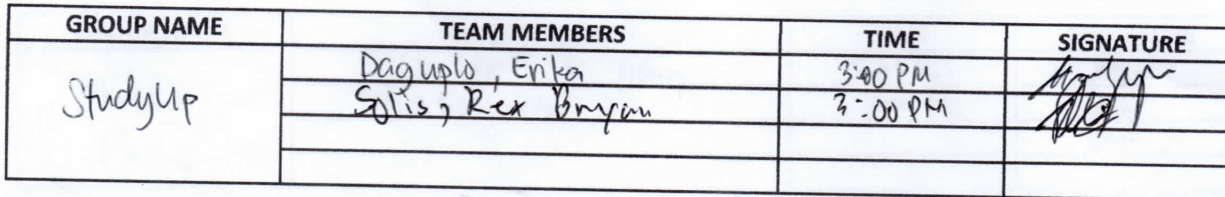 GROUP NAME TEAM MEMBERS TIME SIGNATURE
StudyUp
Daguplo, Erika 3:00 PM
Solis, Rex Bryan 3:00 PM